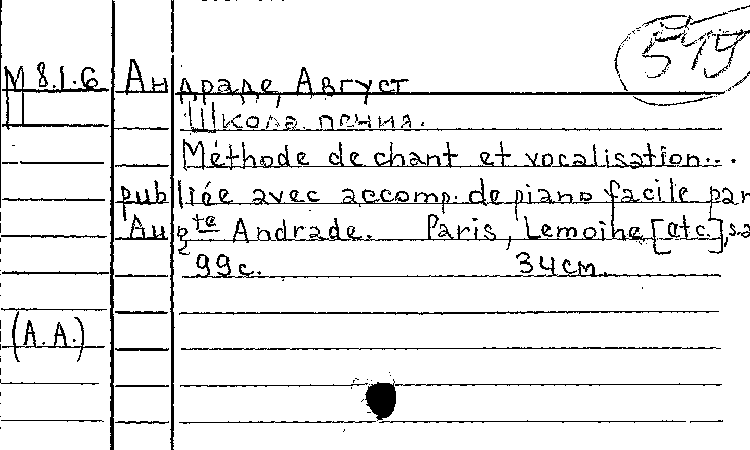 519
М 8.1.6 Андраде, Август
П Школа пения.
Méthode de chant et vocalisation...
publiée avec accomp. de piano facile par
Aug te Andrade. Paris, Lemoine [etc.], s.a
99 с. 34 см.
(А.А.)